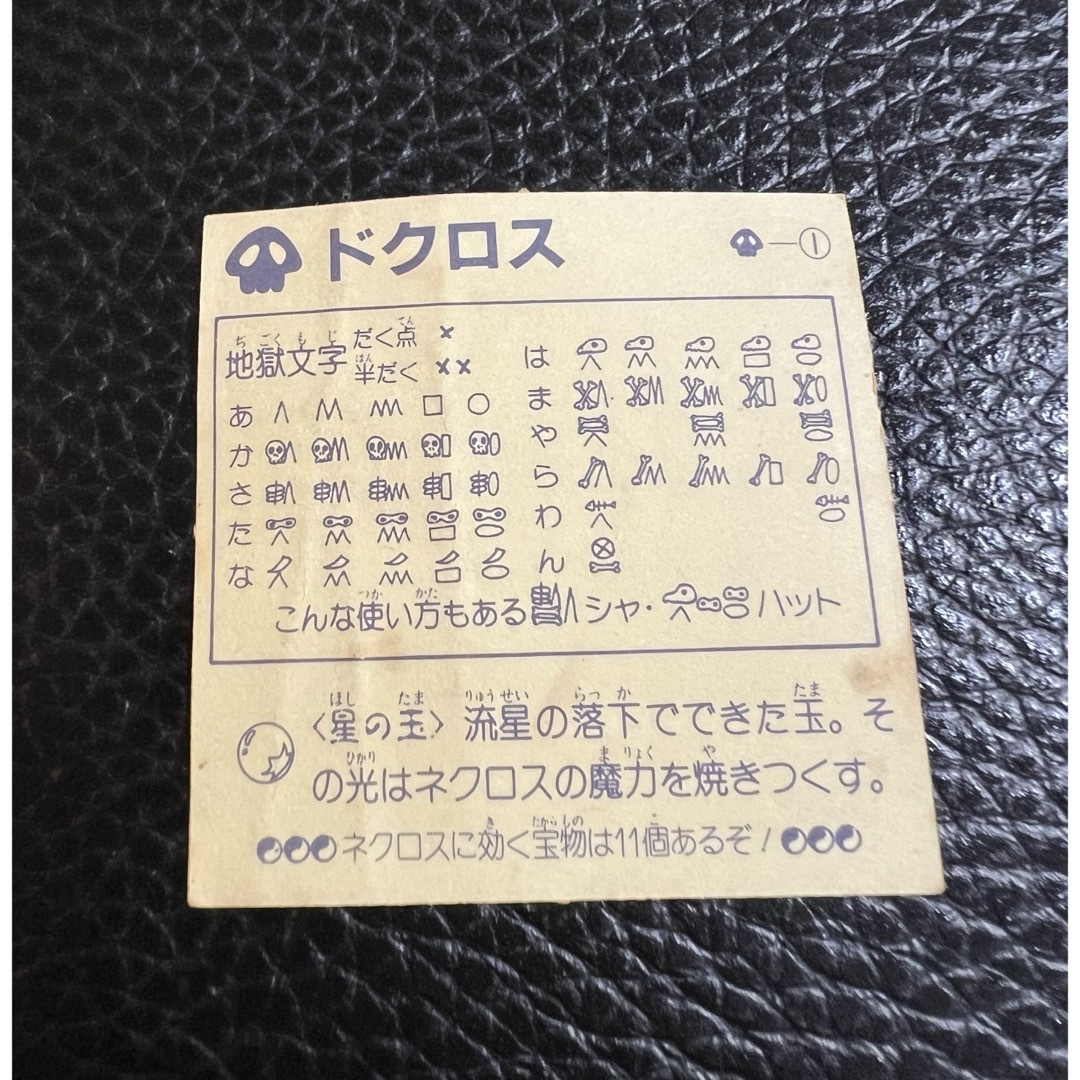 ドクロス
—①
地獄文字 だく点 ×
半だく ××
あ
か
さ
た
な
は
ま
や
ら
わ
ん
こんな使い方もあるシャ・ハット
〈星の玉〉流星の落下でできた玉。そ
の光はネクロスの魔力を焼きつくす。
ネクロスに効く宝物は11個あるぞ!